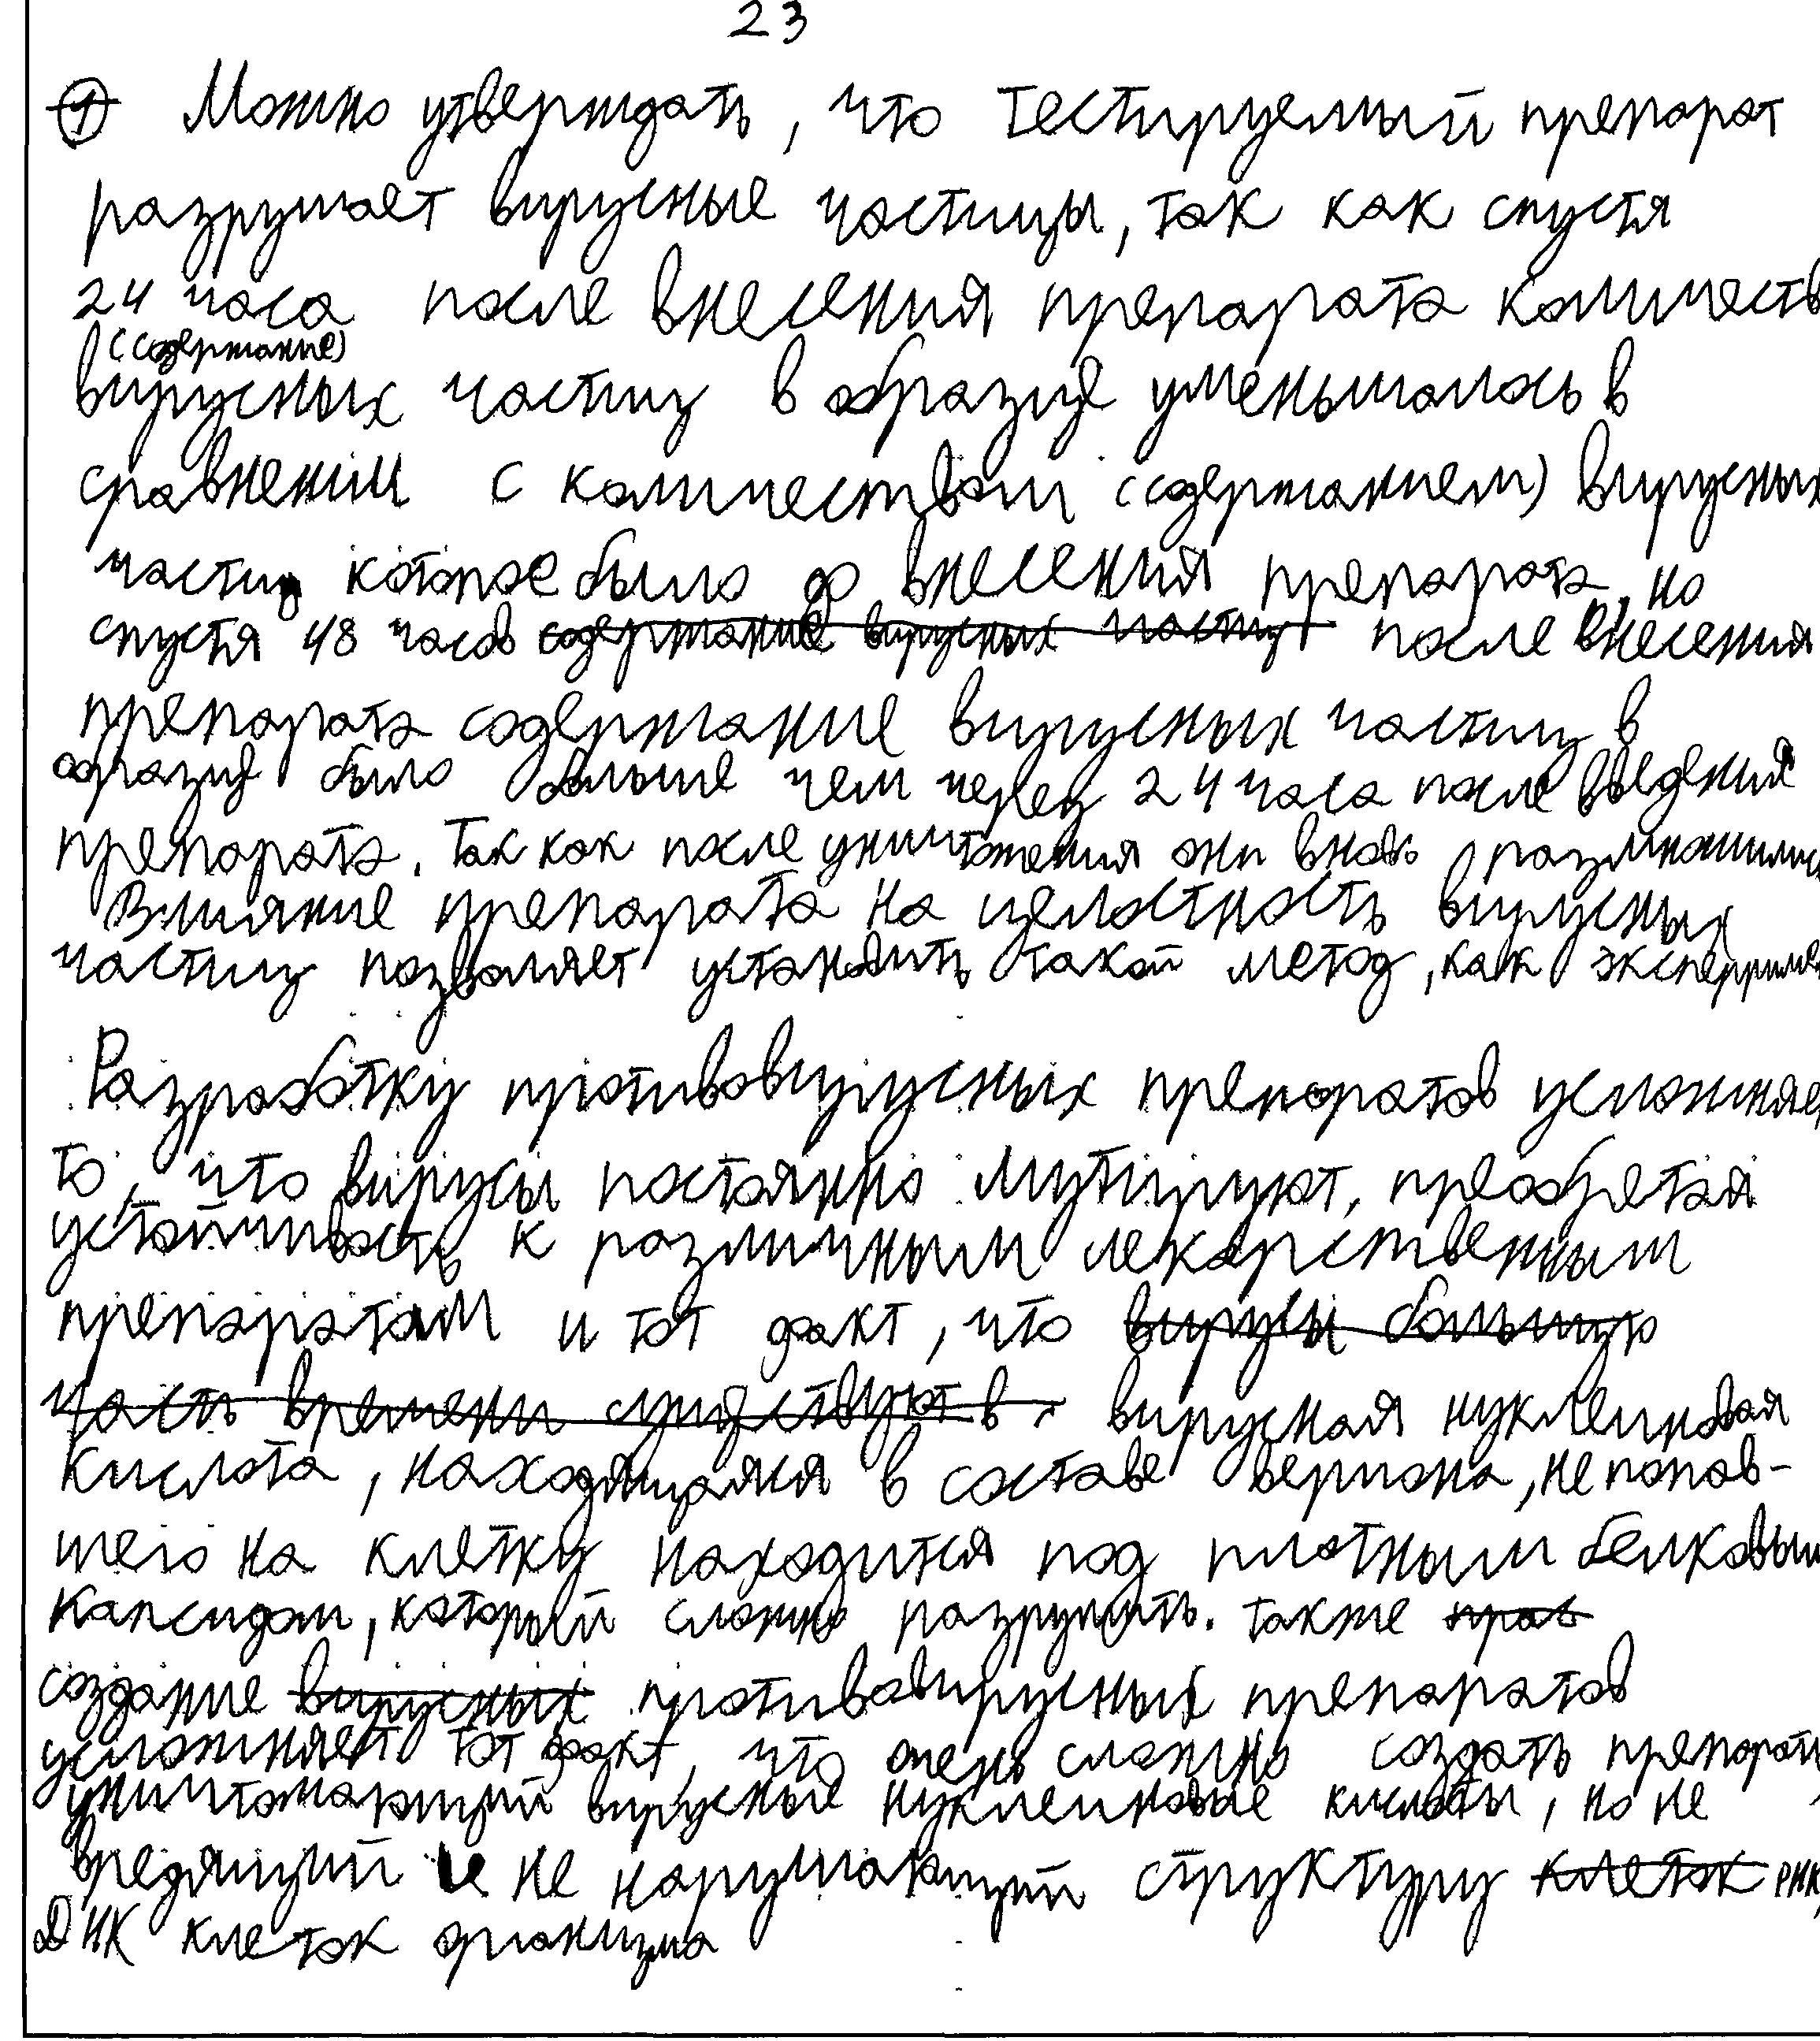 23
1 Можно утверждать, что тестируемый препарат
разрушает вирусные частицы, так как спустя
24 часа после внесения препарата количеств
(содержание)
вирусных частиц в образце уменьшалось в
сравнении с количеством (содержанием) вирусных
частиц которое было до внесения препарата, но
спустя 48 часов содержание вирусных частиц после внесения
препарата содержание вирусных частиц в
образце было больше чем через 24 часа после введения
препарата. Так как после уничтожения они вновь размножились
Влияние препарата на целостность вирусных
частиц позволяет установить такой метод, как экспериме
Разработку противовирусных препаратов усложняе
то, что вирусы постоянно мутируют, преобретая
устойчивость к различным лекарственным
препаратам и тот факт, что вирусы большую
часть времени существуют в вирусная нуклеиновая
кислота, находящаяся в составе вериона, не попав-
шего на клетку находится под плотным белковым
капсидом, который сложно разрушить. Также прав
создание вирусных противовирусных препаратов
усложняет тот факт, что очень сложно создать препарат
уничтожающий вирусные нуклеиновые кислоты, но не
вредящий и не нарушающий структуру клеток РНК,
ДНК клеток организма